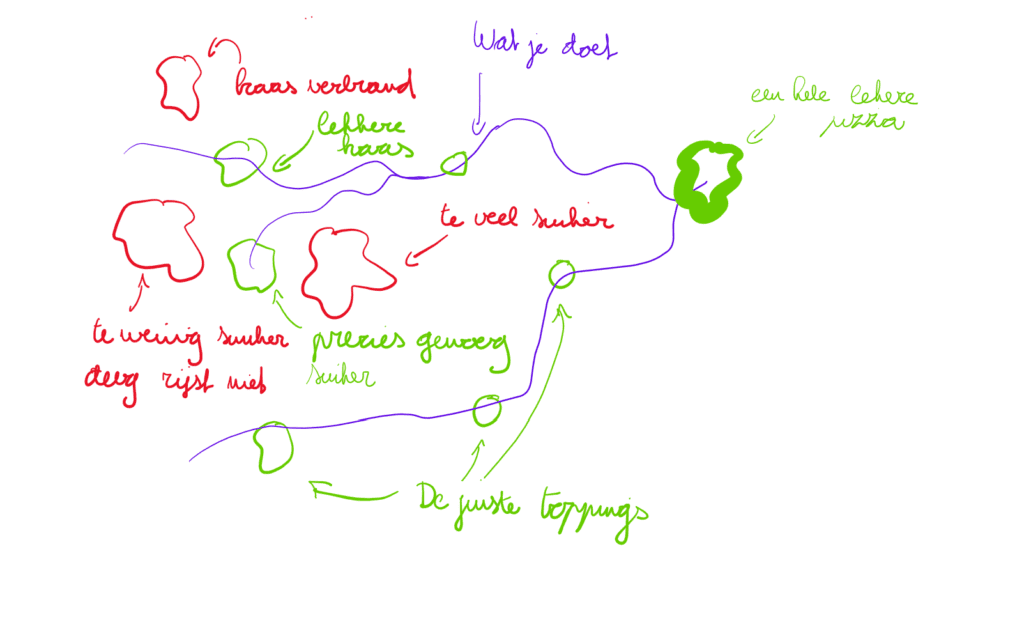 Wat je doet
kaas verbrand
lekkere
kaas
een hele lekere
pizza
te veel suiker
te weinig suiker
deeg rijst niet
precies genoeg
suiker
De juiste toppings